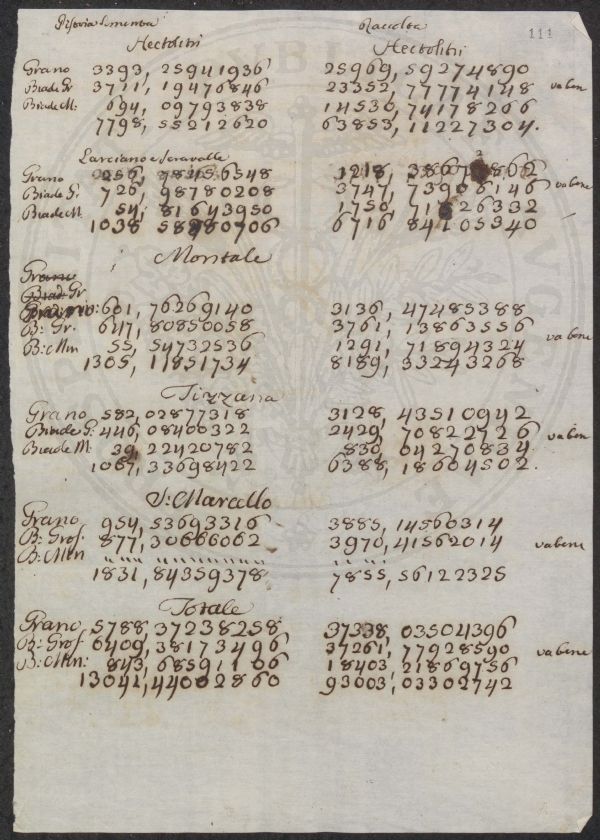 Pistoia Sementa Raccolta 111
Hectolitri Hectolitri
Grano 3393, 25941936 25969, 59274890
Biade Gr 3711, 19476846 23352, 77774148 va ben
Biade M: 694, 09793838 14530, 74178266
7798, 55212620 63853, 11227304.
Larciano e Seravalle
Grano 256, 78456548 1218, 3867 866
Biade G: 726, 98780208 3747, 73906146 va bene
Biade M. 54, 81643950 1750, 71 26332
1038 58280706 6716 84105340
Montale
Grano
Biad Gr
Grano: 601, 76269140 3136, 47485388
B: Gr. 647, 80850058 3761, 13863556
B: Min 55, 54732536 1291, 71894324 va bene
1305, 11851734 8189, 33243268
Tizzana
Grano 582, 02877318 3128, 43510942
Biade G: 446, 08400322 2429, 70822726 va ben
Biade M: 39, 22420782 830, 04270834
1067, 33698422 6388, 18604502.
S: Marcello
Grano 954, 53693316 3885, 14560314
B: Gros. 877, 30666062 3970, 41562014 va bene
B: Min
1831, 84359378 7855, 56122325
Totale
Grano 5788, 37238258 37338, 03504396
B: Gros 6409, 38173496 37261, 77928590 va bene
B: Min: 843, 68591106 18403, 21869756
13041, 44002860 93003, 03302742